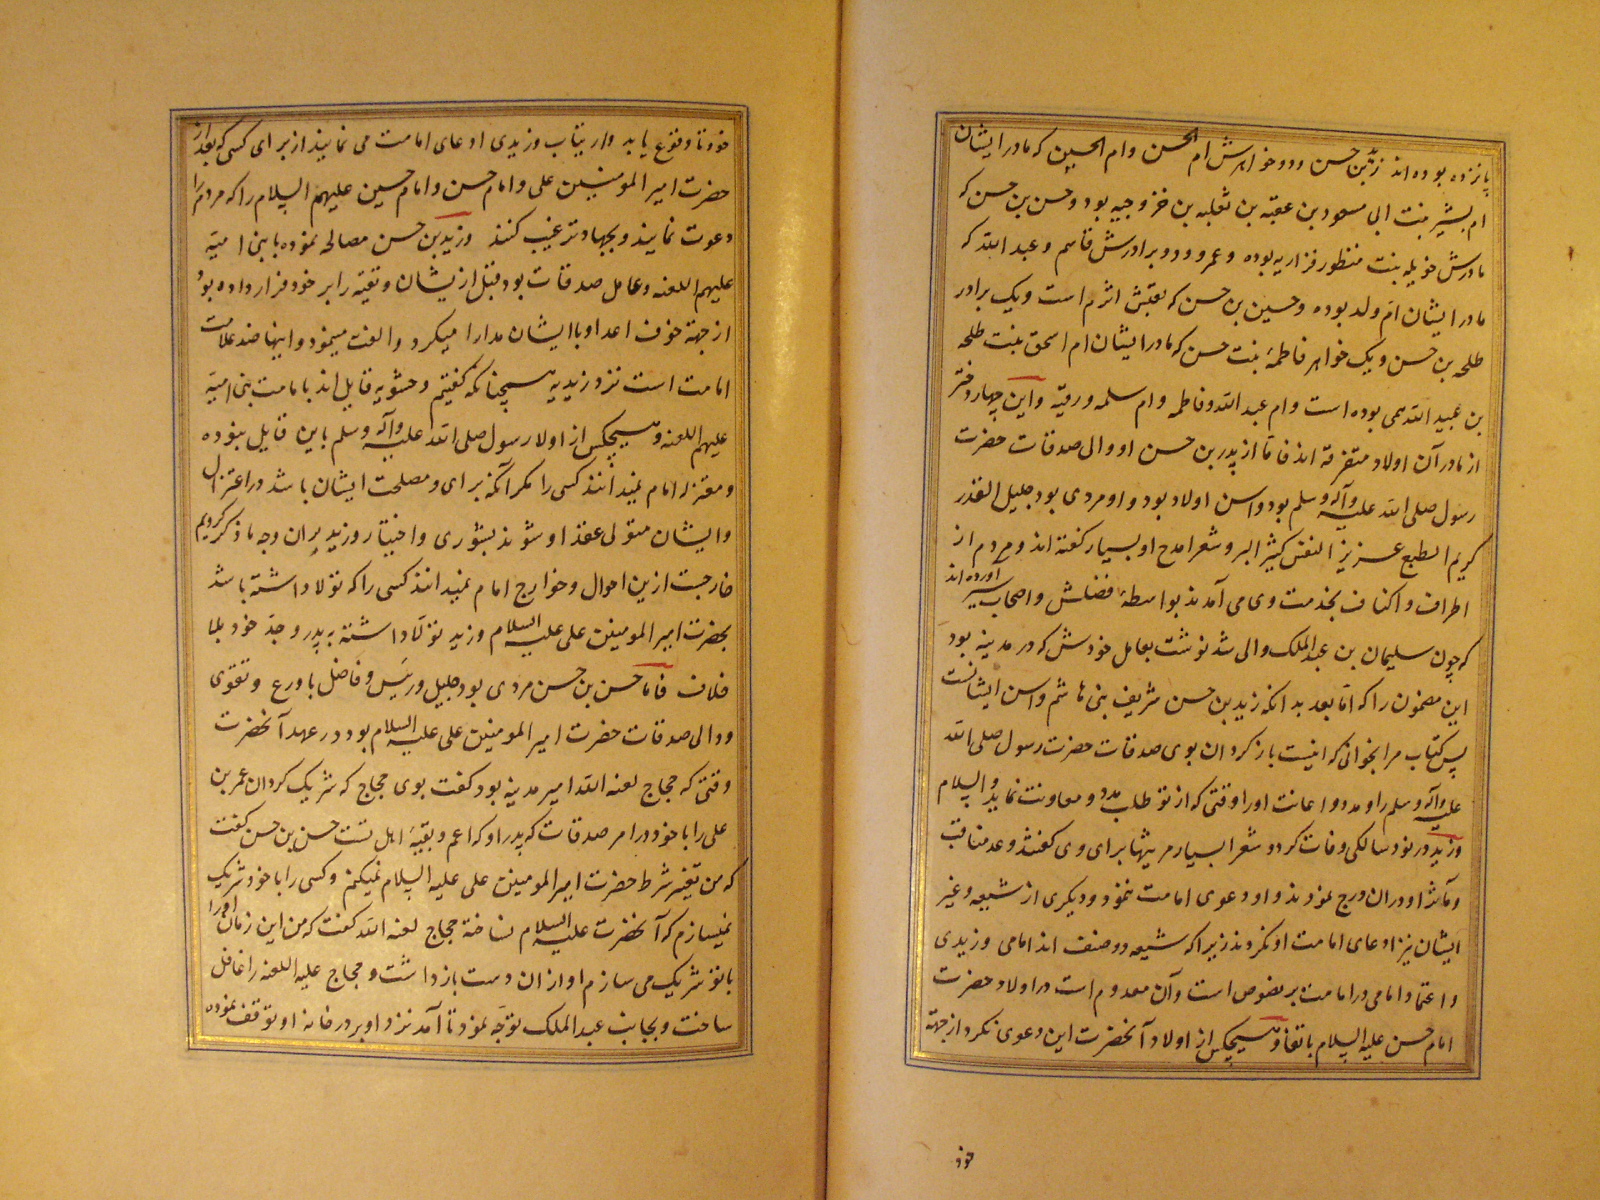 پانزده بوده اند زید بن حسن ودو خواهرش ام الحسن وام الحسین که مادر ایشان
ام بشیر بنت ابی مسعود بن عقبه بن ثعلبه بن خزرجیه بود وحسن بن حسن که
مادرش خویله بنت منظور فزاریه بوده وعمرو ودو برادرش قاسم وعبد الله که
مادر ایشان ام ولد بوده وحسین بن حسن که لقبش اثرم است ویک برادر
طلحه بن حسن ویک خواهر فاطمهٔ بنت حسن که مادر ایشان ام اسحق بنت طلحه
بن عبید الله تمی بوده است وام عبد الله وفاطمه وام سلمه ورقیه واین چهار دختر
از مادر آن اولاد متفرقه اند فاما زید بن حسن او والی صدقات حضرت
رسول صلی الله علیه وآله وسلم بود واسن اولاد بود واو مردی بود جلیل القدر
کریم الطبع عزیز النفس کثیر البر وشعرا مدح او بسیار گفته اند ومردم از
اطراف واکناف بخدمت وی می آمدند بواسطهٔ فضلش واصحاب سیر آورده اند
که چون سلیمان بن عبد الملک والی شد نوشت بعامل خودش که در مدینه بود
این مضمون را که اما بعد بدانکه زید بن حسن شریف بنی هاشم واسن ایشانست
پس کتاب مرا بخوانی کرانیست بازگردان بوی صدقات حضرت رسول صلی الله
علیه وآله وسلم را ومدد واعانت اورا وقتی که از تو طلب مدد ومعاونت نماید والسلام
وزید در نود سالگی وفات کرد وشعرا بسیار مرثیها برای وی گفتند وعد مناقب
ومآثر او دران درج نمودند واو دعوی امامت ننمود ودیگری از شیعه وغیر
ایشان نیز ادعای امامت او نکردند زیرا که شیعه دو صنف اند امامی وزیدی
واعتماد امامی در امامت بر نصوص است وآن معدوم است در اولاد حضرت
امام حسن علیه السلام باتفاق وهیچکس از اولاد آنحضرت این دعوی نکرد از جهة
خود
خود تا وقوع یابد وارتیاب وزیدی ادعای امامت می نمایند از برای کسی که بعد از
حضرت امیر المومنین علی وامام حسن وامام حسین علیهم السلام را که مردم را
دعوت نمایند وبجهاد ترغیب کنند وزید بن حسن مصالحه نموده با بنی امیه
علیهم اللعنه وعامل صدقات بود قبل ازیشان وتقیه را بر خود قرار داده بود
از جهة خوف اعدا وبا ایشان مدارا میکرد والفت مینمود واینها ضد علامت
امامت است نزد زیدیه همچنانکه گفتیم وحشویه قایل اند بامامت بنی امیه
علیهم اللعنه وهیچکس از اولاد رسول صلی الله علیه وآله وسلم باین قایل نبوده
ومعتزله امام نمیدانند کسی را مگر آنکه برای ومصلحت ایشان باشد در اعتزال
وایشان متولی عقد او شوند بشوری واختیار وزید بران وجه ما ذکر کردیم
خارجست ازین احوال وخوارج امام نمیدانند کسی را که تولا داشته باشد
بحضرت امیر المومنین علی علیه السلام وزید تولا داشته به پدر وجد خود بلا
خلاف فاما حسن بن حسن مردی بود جلیل ورئیس وفاضل با ورع وتقوی
ووالی صدقات حضرت امیر المومنین علی علیه السلام بود در عهد آنحضرت
وقتی که حجاج لعنه الله امیر مدینه بود گفت بوی حجاج که شریک گردان عمر بن
علی را با خود در امر صدقات که پدر او که اعم وبقیهٔ اهل تست حسن بن حسن گفت
که من تغیر شرط حضرت امیر المومنین علی علیه السلام نمیکنم وکسی را با خود شریک
نمیسازم که آنحضرت علیه السلام نساخته حجاج لعنه الله گفت که من این زمان اورا
با تو شریک می سازم او ازان دست باز داشت وحجاج علیه اللعنه را غافل
ساخت وبجانب عبد الملک توجه نمود تا آمد نزد او بر در خانه او توقف نموده